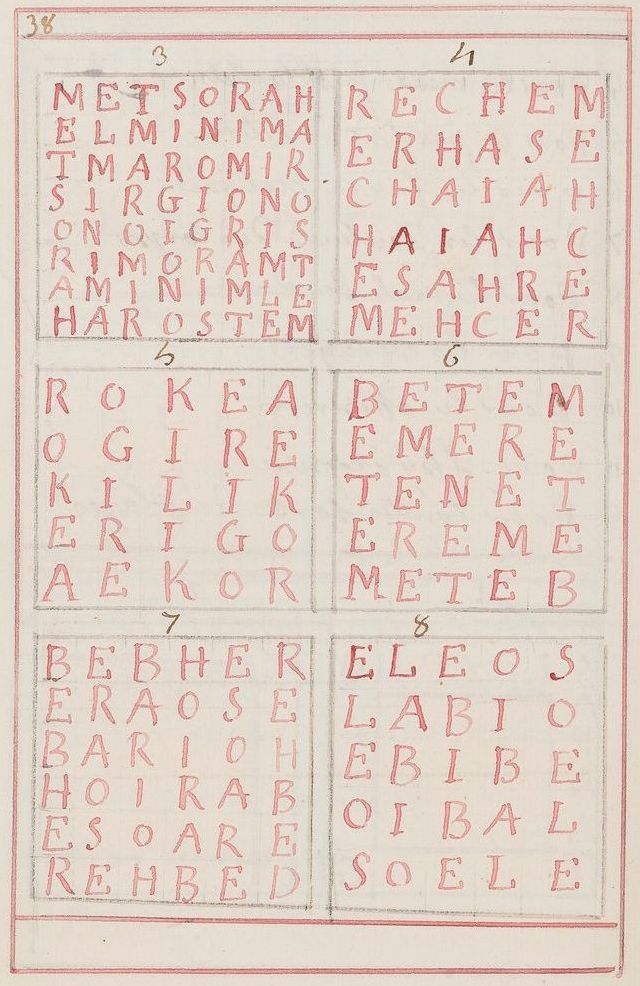 38
3
METSORAH
ELMINIMA
TMAROMIR
SIRGIONO
ONOIGRIS
RIMORAMT
AMINIMLE
HAROSTEM
4
RECHEM
ERHASE
CHAIAH
HAIAHC
ESAHRE
MEHCER
5
ROKEA
OGIRE
KILIK
ERIGO
AEKOR
6
BETEM
EMERE
TENET
EREME
METEB
7
BEBHER
ERAOSE
BARIOH
HOIRAB
ESOARE
REHBED
8
ELEOS
LABIO
EBIBE
OIBAL
SOELE